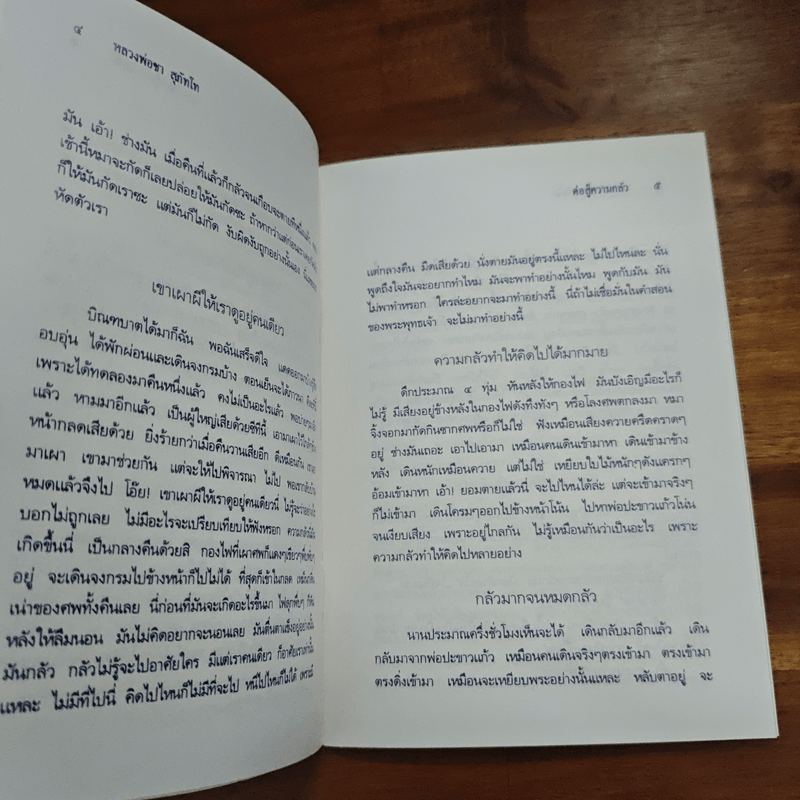 ๔
หลวงพ่อชา สุภัทโท
มัน เอ้า! ช่างมัน เมื่อคืนที่แล้วก็กลัวจนเกือบจะตายทีหนึ่งแล้ว
เช้านี้หมาจะกัดก็เลยปล่อยให้มันกัดซะ ถ้าหากว่าแต่ก่อนเรา
ก็ให้มันกัดเราซะ แต่มันก็ไม่กัด งับผิดงับถูกอย่างนั้นเอง
หัดตัวเรา
เขาเผาผีให้เราดูอยู่คนเดียว
บิณฑบาตได้มาก็ฉัน พอฉันเสร็จดีใจ แดดออกมา
อบอุ่น ได้พักผ่อนและเดินจงกรมบ้าง ตอนเย็นจะได้ภาวนา
เพราะได้ทดลองมาคืนหนึ่งแล้ว คงไม่เป็นอะไรแล้ว พอบ่าย
แล้ว หามมาอีกแล้ว เป็นผู้ใหญ่เสียด้วยซีทีนี้ เอามาเผาไว้ใกล้ๆ
หน้ากลดเสียด้วย ยิ่งร้ายกว่าเมื่อคืนวานเสียอีก ดีเหมือนกัน
มาเผา เขามาช่วยกัน แต่จะให้ไปพิจารณา ไม่ไป พอเขากลับบ้าน
หมดแล้วจึงไป โอ๊ย! เขาเผาผีให้เราดูอยู่คนเดียวนี่ ไม่รู้จะว่าอย่างไร
บอกไม่ถูกเลย ไม่มีอะไรจะเปรียบเทียบให้ฟังหรอก ความกลัวมัน
เกิดขึ้นนี่ เป็นกลางคืนด้วยสิ กองไฟที่เผาศพก็แดงๆเขียวๆพึ่บพั่บๆ
อยู่ จะเดินจงกรมไปข้างหน้าก็ไปไม่ได้ ที่สุดก็เข้าในกลด เหม็น
เน่าของศพทั้งคืนเลย นี่ก่อนที่มันจะเกิดอะไรขึ้นมา ไฟลุกพึ่บๆ ก็หัน
หลังให้ลืมนอน มันไม่คิดอยากจะนอนเลย มันตื่นตาแข็งอยู่อย่างนั้น
มันกลัว กลัวไม่รู้จะไปอาศัยใคร มีแต่เราคนเดียว ก็อาศัยเราเท่านั้น
แหละ ไม่มีที่ไปนี่ คิดไปไหนก็ไม่มีที่จะไป หนีไปไหนก็ไม่ได้ เพราะมี
ต่อสู้ความกลัว ๕
แต่กลางคืน มืดเสียด้วย นั่งตายมันอยู่ตรงนี้แหละ ไม่ไปไหนละ นั่น
พูดถึงใจมันจะอยากทำไหม มันจะพาทำอย่างนั้นไหม พูดกับมัน มัน
ไม่พาทำหรอก ใครล่ะอยากจะมาทำอย่างนี้ นี่ถ้าไม่เชื่อมั่นในคำสอน
ของพระพุทธเจ้า จะไม่มาทำอย่างนี้
ความกลัวทำให้คิดไปได้มากมาย
ดึกประมาณ ๔ ทุ่ม หันหลังให้กองไฟ มันบังเอิญมีอะไรก็
ไม่รู้ มีเสียงอยู่ข้างหลังในกองไฟดังทึงทังๆ หรือโลงศพตกลงมา หมา
จิ้งจอกมากัดกินซากศพหรือก็ไม่ใช่ ฟังเหมือนเสียงความครืดคราดๆ
อยู่ ช่างมันเถอะ เอาไปเอามา เหมือนคนเดินเข้ามาหา เดินเข้ามาข้าง
หลัง เดินหนักเหมือนควาย แต่ไม่ใช่ เหยียบใบไม้หนักๆดังแครกๆ
อ้อมเข้ามาหา เอ้า! ยอมตายแล้วนี่ จะไปไหนได้ล่ะ แต่จะเข้ามาจริงๆ
ก็ไม่เข้ามา เดินโครมๆออกไปข้างหน้าโน้น ไปหาพ่อปะขาวแก้วโน่น
จนเงียบเสียง เพราะอยู่ไกลกัน ไม่รู้เหมือนกันว่าเป็นอะไร เพราะ
ความกลัวทำให้คิดไปหลายอย่าง
กลัวมากจนหมดกลัว
นานประมาณครึ่งชั่วโมงเห็นจะได้ เดินกลับมาอีกแล้ว เดิน
กลับมาจากพ่อปะขาวแก้ว เหมือนคนเดินจริงๆตรงเข้ามา ตรงเข้ามา
ตรงดิ่งเข้ามา เหมือนจะเหยียบพระอย่างนั้นแหละ หลับตาอยู่ จะ